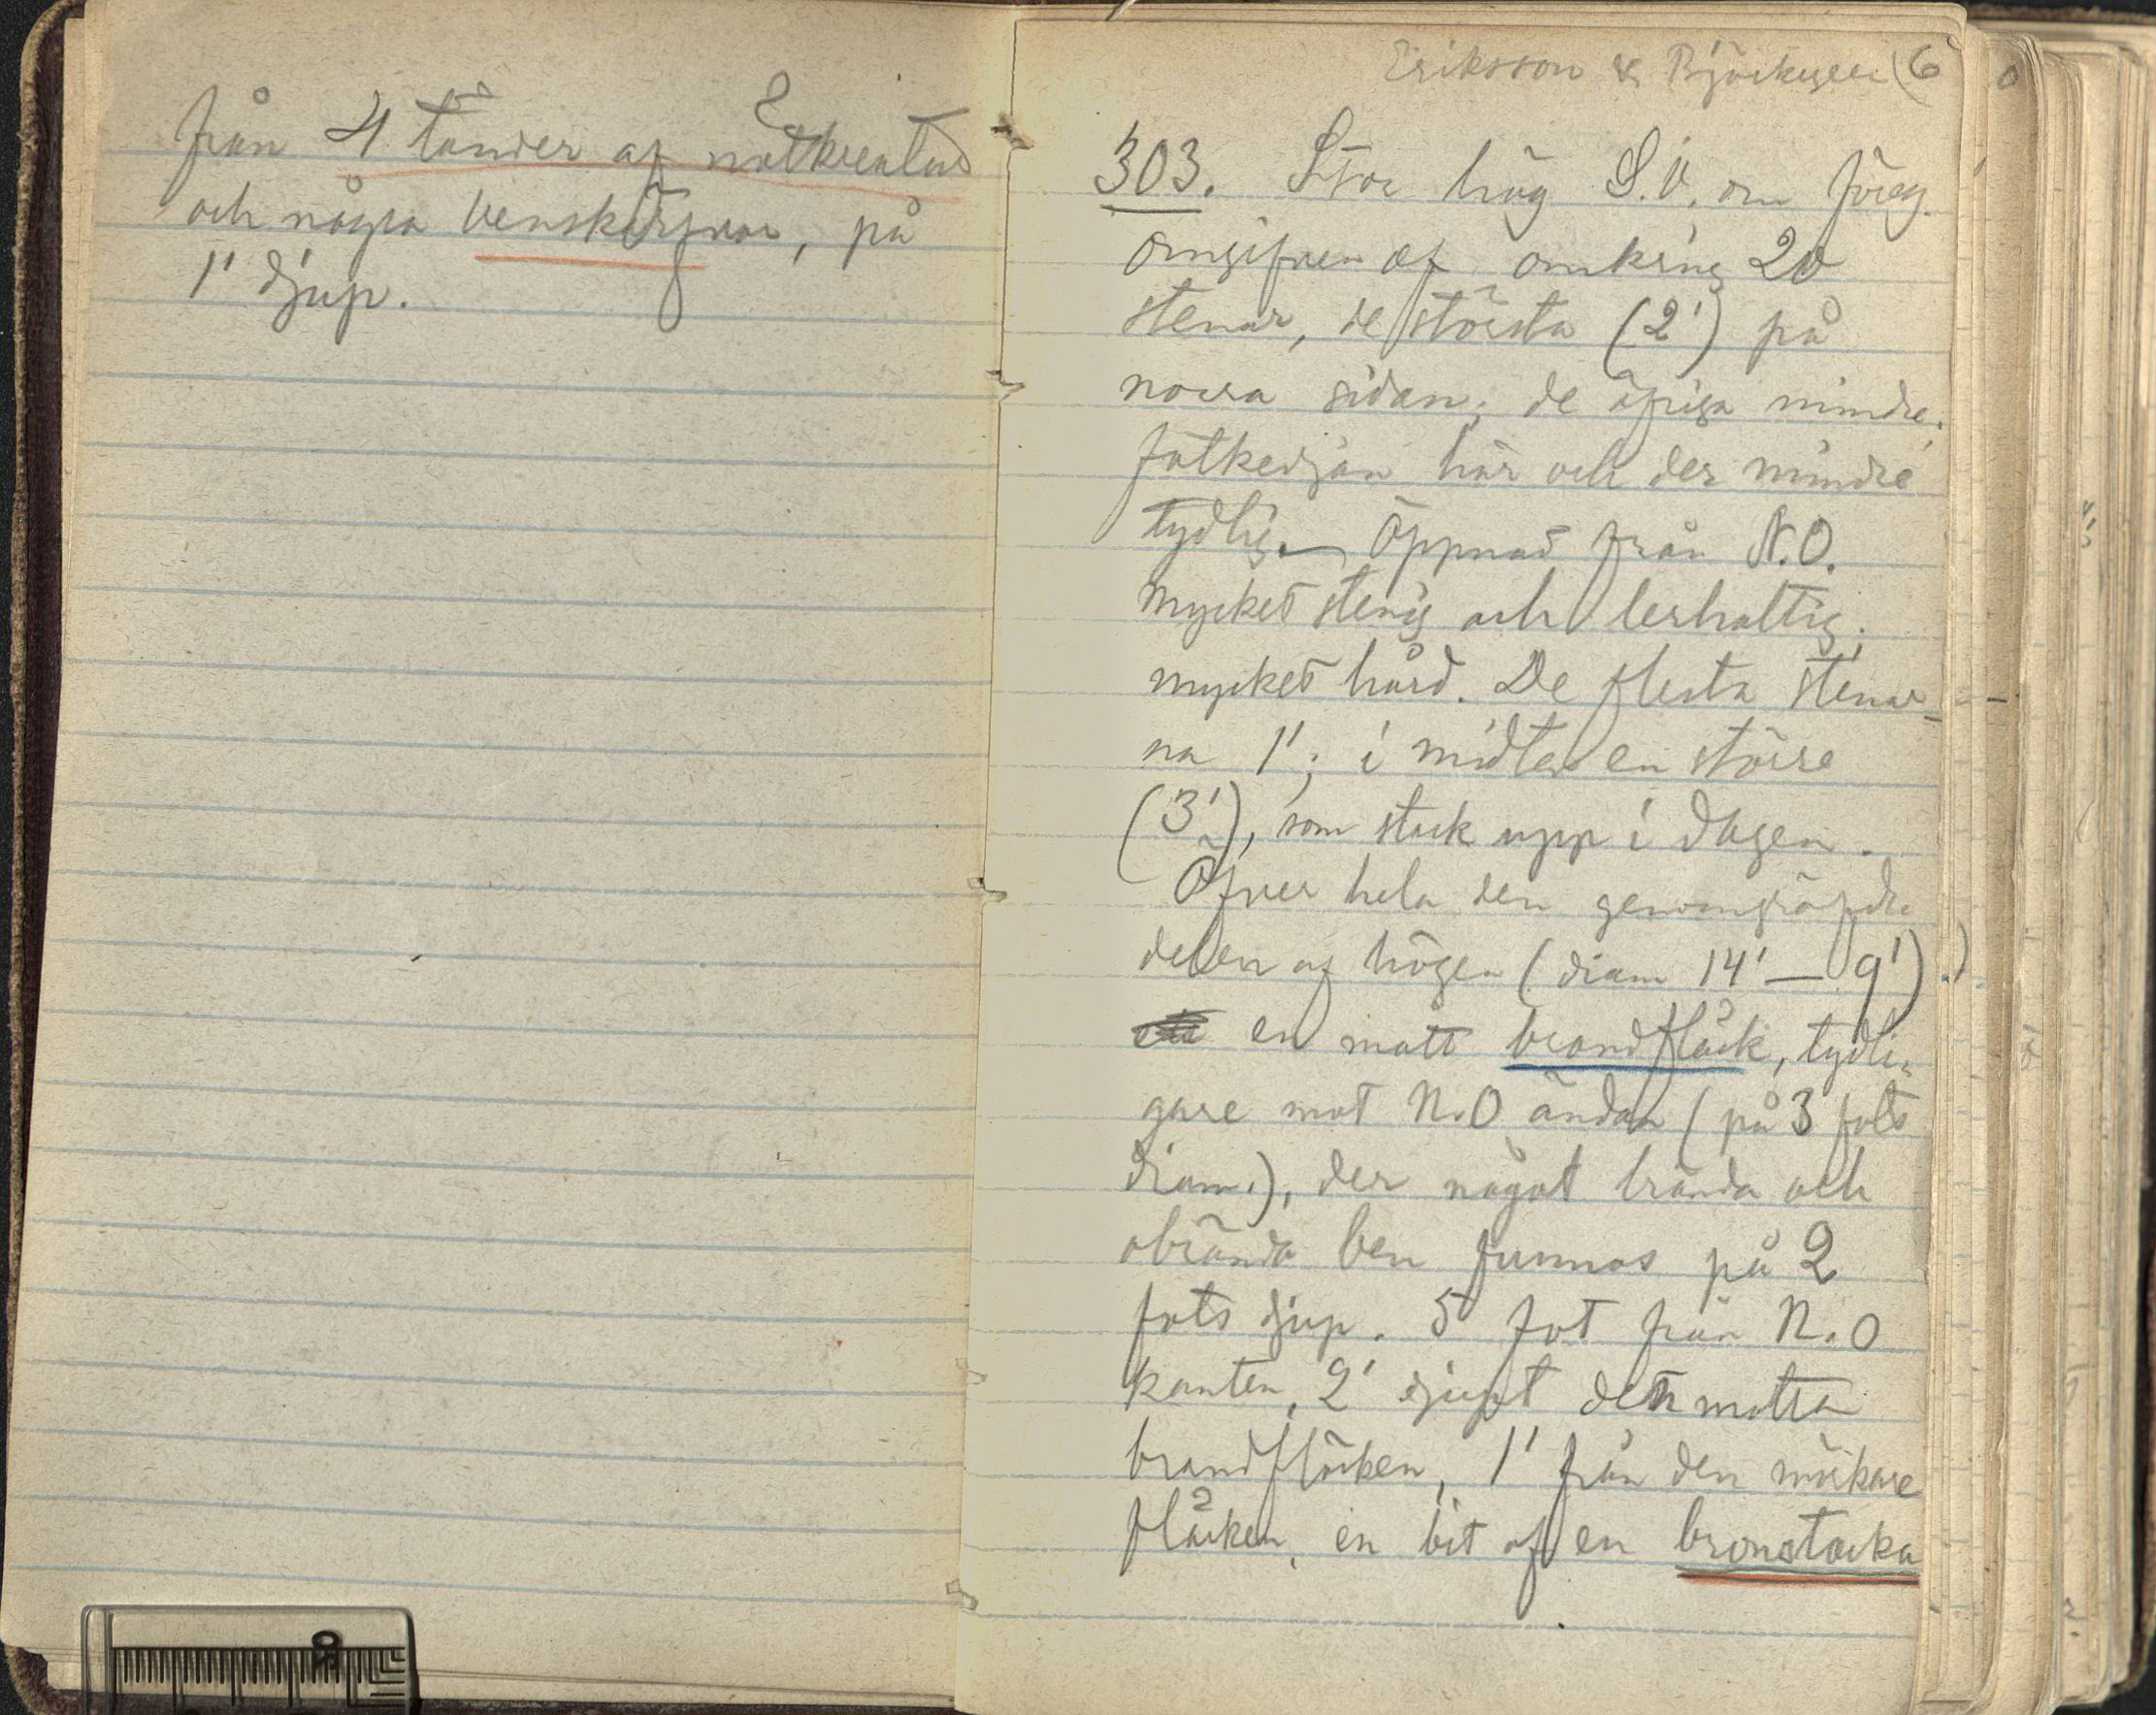 från 4 tänder af nötkreatur
och några benskärfvor, på
1' djup.
Eriksson & Björkgren 6
303. Stor hög S.V. om föreg.
omgifven af omkring 20
stenar, de största (2') på
norra sidan; de öfriga mindre.
fotkedjan här och der mindre
tydlig. — Öppnad från N.O.
mycket stenig och lerhaltig;
mycket hård. De flesta stenar-
na 1'; i midten en större
(3'), som stack upp i dagen.
Öfver hela den genomgräfda
delen af högen (diam 14' — 9')
en matt brandfläck, tydli-
gare mot N.O ändan (på 3 fots
diam.), der något brända och
obrända ben funnos på 2
fots djup. 5 fot från N.O
kanten, 2' djupt i den matta
brandfläcken, 1' från den mörkare
fläcken, en bit af en bronstacka